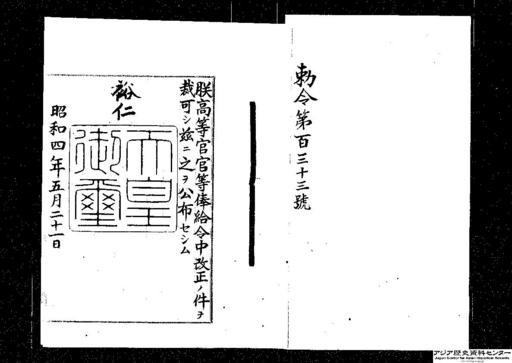 勅令第百三十三號
朕高等官官等俸給令中改正ノ件ヲ
裁可シ茲ニ之ヲ公布セシム
裕仁
天皇
御璽
昭和四年五月二十一日
アジア歴史資料センター
Japan Center for Asian Historical Records